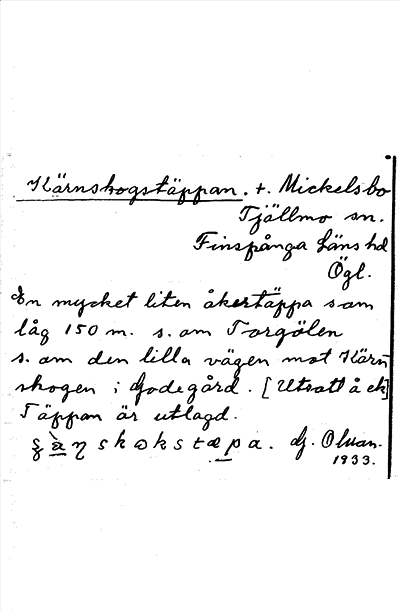 Kärnskogstäppan. t. Mickelsbo
Tjällmo sn.
Finspånga läns hd
Ögl.
En mycket liten åkertäppa som
låg 150 m. s. om Torgölen
s. om den lilla vägen mot Kärn
skogen i Godegård. [Utsatt å ek]
Täppan är utlagd.
dj. Olsson.
1933.